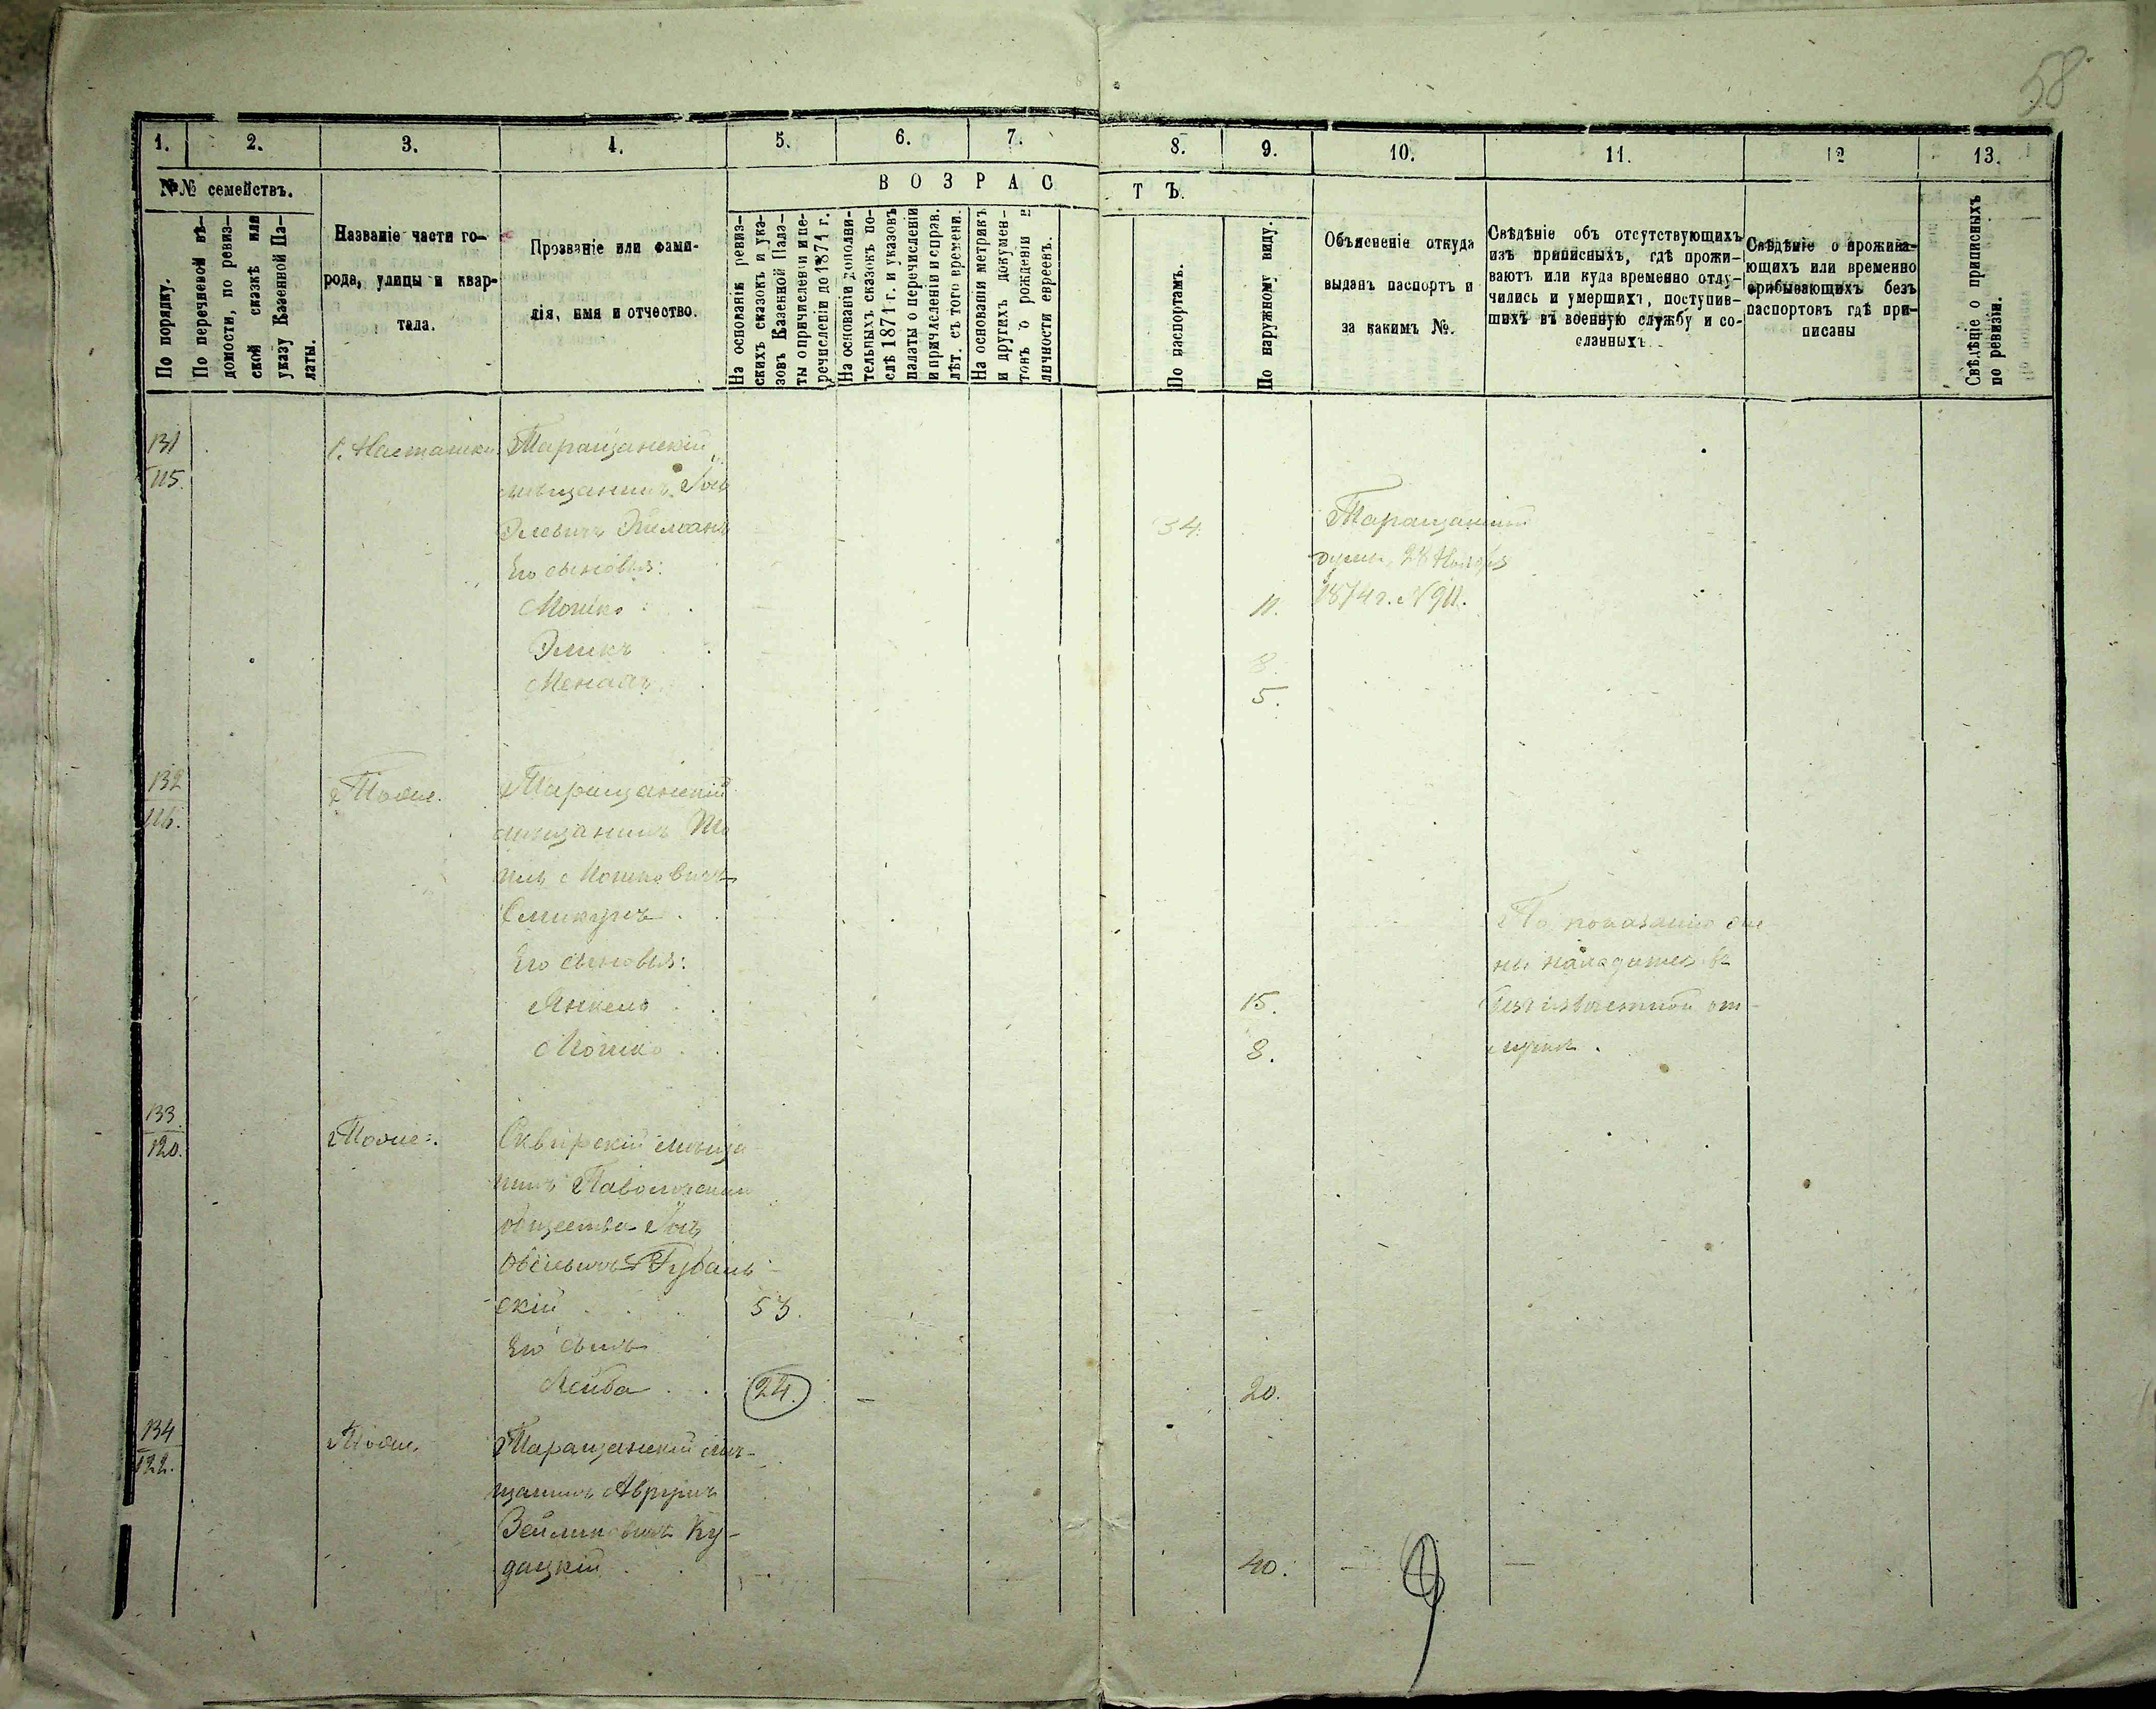 58
1. 2. 3. 4. 5. 6. 7. 8. 9. 10. 11. 12 13.
№№ семействъ.
В О З Р А С Т Ъ.
По порядку.
По перечневой вѣ-
домости, по ревиз-
ской сказкѣ или
указу Казенной Па-
латы.
Названіе части го-
рода, улицы и квар-
тала.
Прозваніе или фами-
лія, имя и отчество.
На основаніи ревиз-
скихъ сказокъ и ука-
зовъ Казенной Пала-
ты о причисленіи и пе-
речисленіи до 1871 г.
На основаніи дополни-
тельныхъ сказокъ по-
слѣ 1871 г. и указовъ
палаты о перечисленіи
и причисленіи и справ.
лѣт. съ того времени.
На основаніи метрикъ
и другихъ докумен-
товъ о рожденіи и
личности евреевъ.
По паспортамъ.
По наружному виду.
Объясненіе откуда
выданъ паспортъ и
за какимъ №.
Свѣдѣніе объ отсутствующихъ
изъ приписныхъ, гдѣ прожи-
ваютъ или куда временно отлу-
чились и умершихъ, поступив-
шихъ въ военную службу и со-
сланныхъ.
Свѣдѣніе о прожива-
ющихъ или временно
прибывающихъ безъ
паспортовъ гдѣ при-
писаны
Свѣдѣніе о приписныхъ
по ревизіи.
131
115.
Таращанскій
мѣщанинъ
34.
Таращанской
думы, 28 Ноября
1874 г. № 911.
Его сыновья:
Мошко 11.
Эликъ 8
5.
132
Таращанскій
мѣщанинъ
Мошковичъ
Его сыновья:
Янкель 15.
Мошко 8.
По показанію
находится въ
безъизвѣстной от-
лучкѣ.
133
120.
Сквирскій мѣща
нинъ Паволочскаго
общества
скій 53.
Его сынъ
Лейба 24. 20.
134
122.
Таращанскій мѣ-
щанинъ Аврумъ
Зейликовичъ Ку-
дацкій 40.